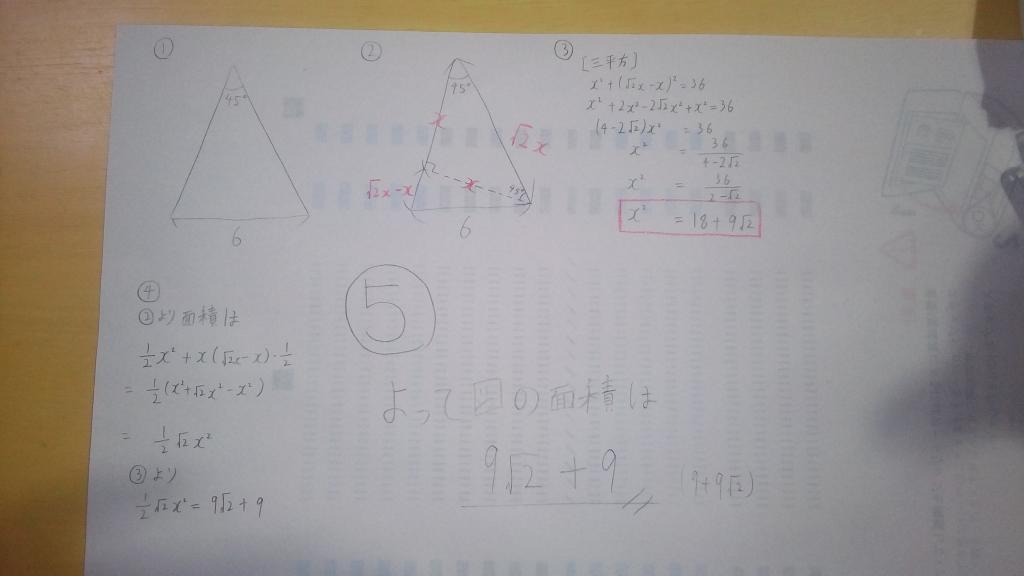 ①
45°
6
②
45°
x
√2x
√2x-x
x
45°
6
③
[三平方]
x²+(√2x-x)²=36
x²+2x²-2√2x²+x²=36
(4-2√2)x² = 36
x² = 36/(4-2√2)
x² = 36/(2-√2)
x² = 18+9√2
④
②より面積は
1/2 x² + x(√2x-x)・1/2
= 1/2(x²+√2x²-x²)
= 1/2 √2x²
③より
1/2 √2x² = 9√2+9
⑤
よって図の面積は
9√2+9
(9+9√2)